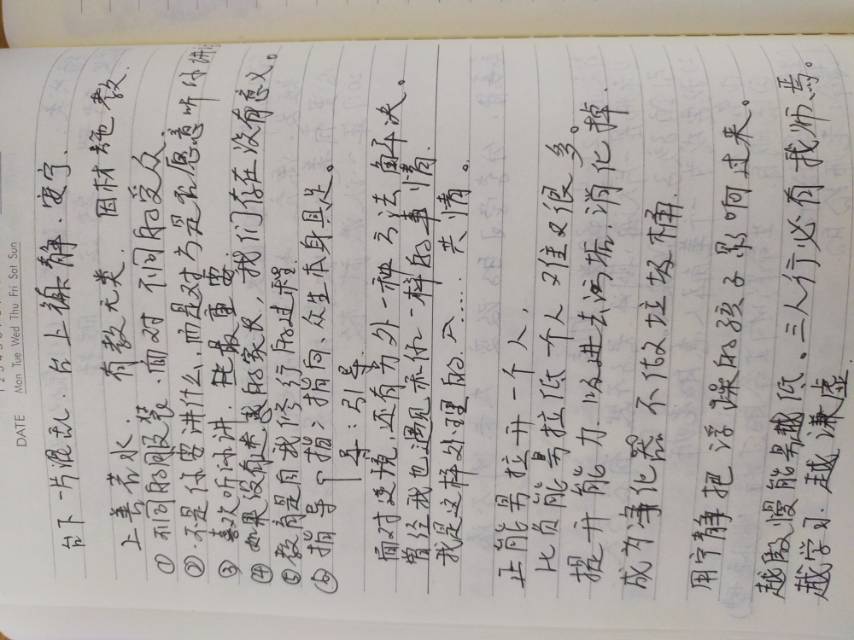 DATE Mon Tue Wed Thu Fri Sat Sun
台下一片混乱.台上徐静.安宁.
上善若水. 有教无类. 因材施教.
① 不同的服装.面对不同的受众
②.不是你要讲什么,而是对方是否愿意听你讲
③ 喜欢听你讲.最重要.
④ 如果没有的家长,我们存在没有意义。
⑤教育是自我修行的过程.
⑥指导 指:指向.众生本身具足。
导:引导.
面对逆境,还有另外一种方法解决。
曾经我也遇见和你一样的事情.
我是这样处理的.……共情。
正能量拉升一个人,
比负能量拉低一个人又很多。
提升能力.以进去污垢.消化掉.
成为净化器.不做垃圾桶.
用宁静把浮躁的孩子影响过来。
越傲慢能量越低。三人行必有我师焉。
越学习.越谦虚.